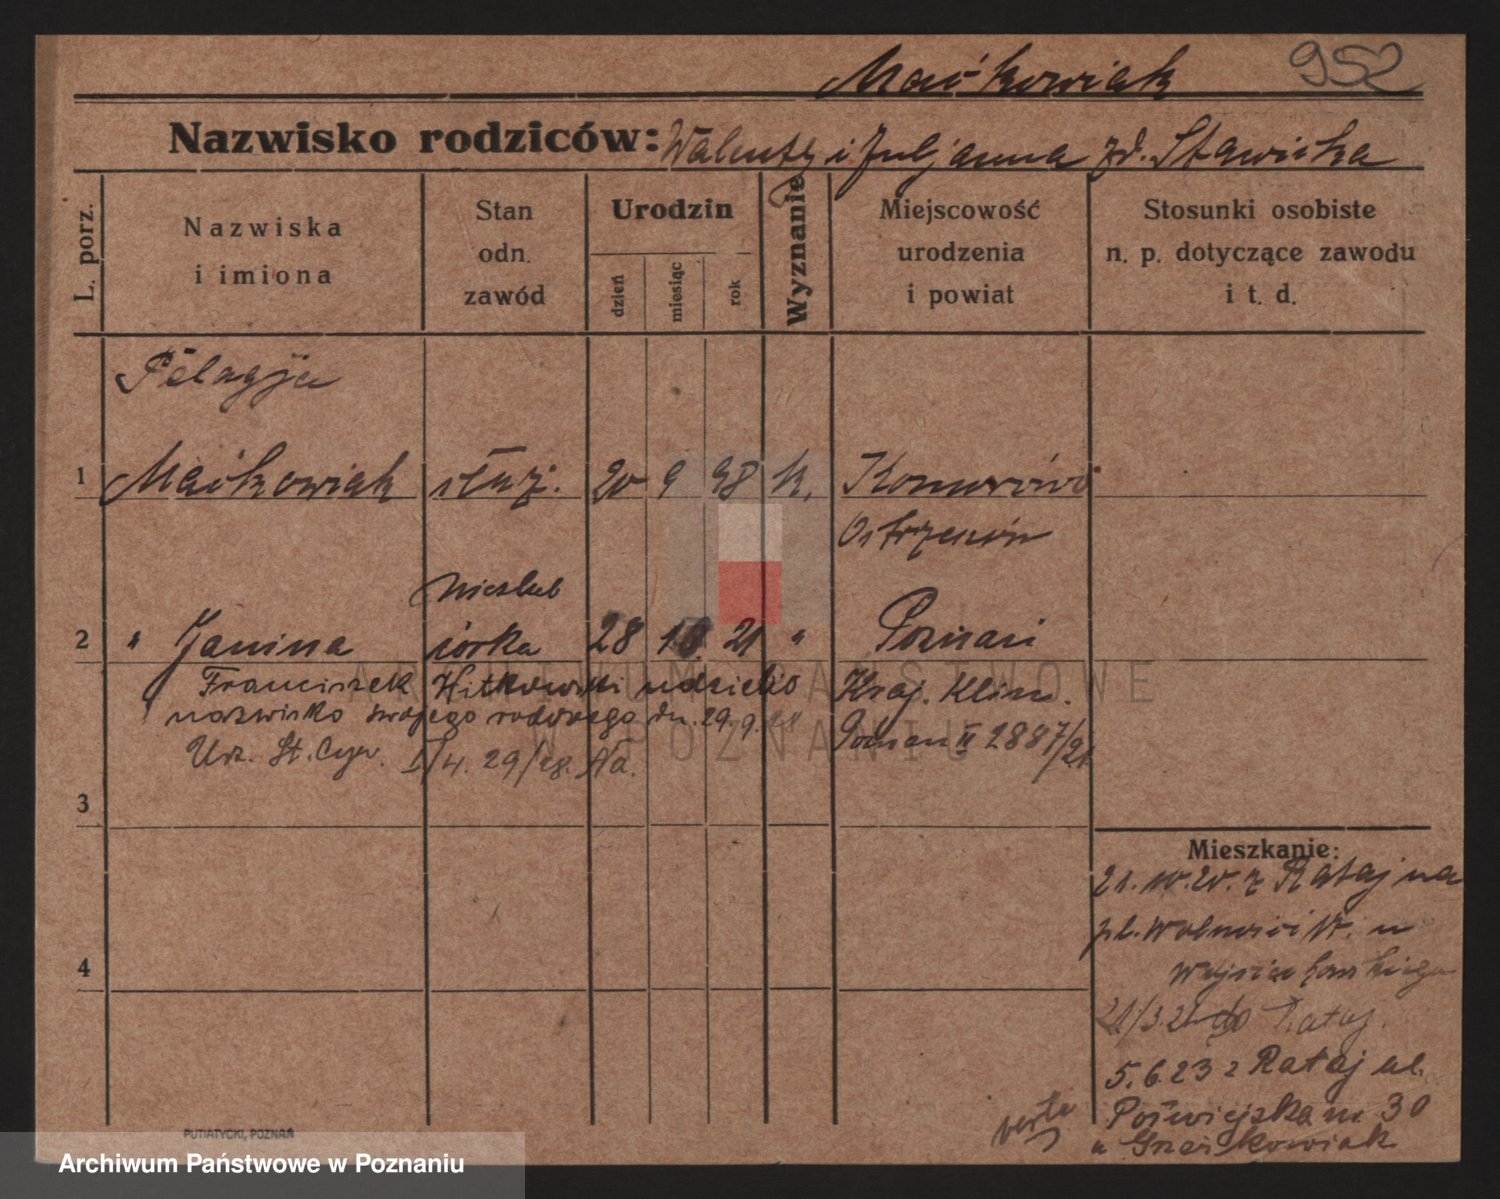 Maćkowiak 952
Nazwisko rodziców: Walenty i Juljanna zd. Stawicka
L. porz.
Nazwiska i imiona
Stan odn. zawód
Urodzin
dzień miesiąc rok
Wyznanie
Miejscowość urodzenia i powiat
Stosunki osobiste n. p. dotyczące zawodu i t. d.
Pelagja
1 Maćkowiak służ. 20 9 98 k. Komorowo
Ostrzeszów
nieślub
2 " Janina córka 28 10. 21 " Poznań
Franciszek Witkowski udzielio Kraj. Klin.
nazwisko swojego rodowego dn. 29.9.28 Poznań II 2887/21
Urz. St. Cyw. I/4. 29/28. Ad.
3
Mieszkanie:
21.10.20. z Rataj na
pl. Wolności 14. u
21/3.21 do Rataj.
4
5.6.23 z Rataj ul.
Poświejska m. 30
u Grześkowiak
verte
PUTIATYCKI, POZNAŃ
ARCHIWUM PAŃSTWOWE
W POZNANIU
Archiwum Państwowe w Poznaniu